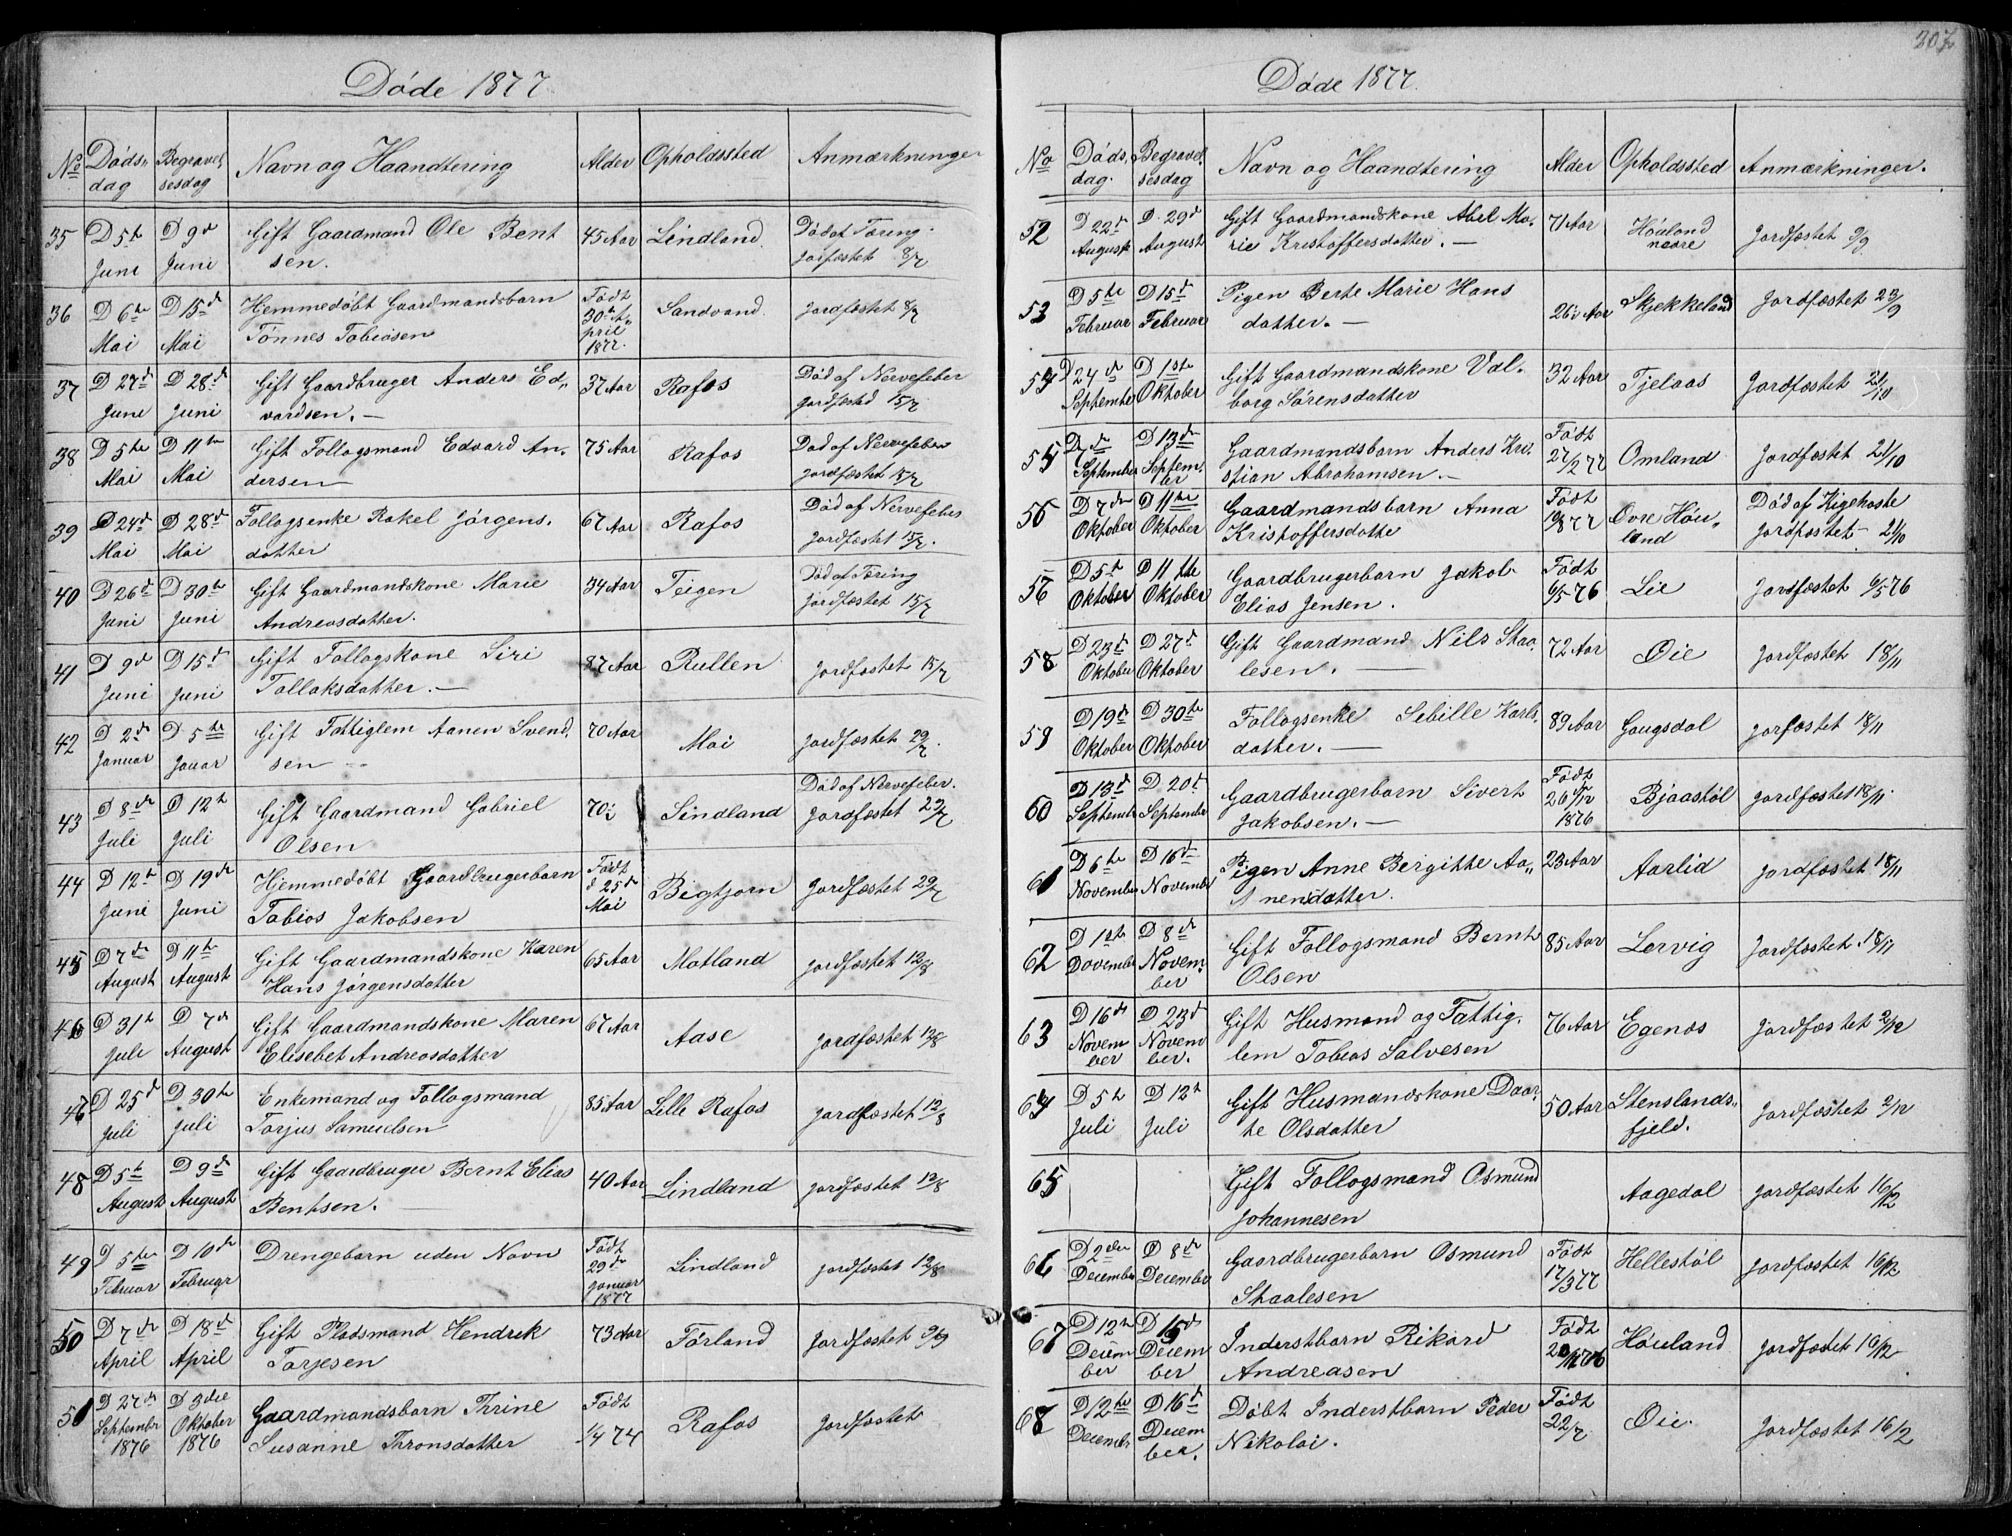 307
Døde 1877.
No Døds- dag Begravel- sesdag Navn og Haandtering Alder Opholdssted Anmærkninger
35 D 5te Juni D 9d Juni Gift Gaardmand Ole Bent 45 Aar Lindland. Død af Tæring.
sen. jorfæstet 8/7
36 D 6te Mai D 15d Mai Hjemmedøbt Gaardmandsbarn Født 30te A- pril 1877. Sandvand. Jordfæstet 8/7
Tønnes Tobiasen
37 D 27d Juni D 28d Juni Gift Gaardbruger Anders Ed- 37 Aar Rafos Død af Nervefeber
vardsen. — jordfæsted 15/7
38 D 5te Mai D 11te Mai Gift Follogsmand Edvard An- 75 Aar Rafos Død af Nervefeber
dersen — jordfæstet 15/7
39 D 24d Mai D 28d Mai Follogsenke Rakel Jørgens- 67 Aar Rafos Død af Nervefeber
datter Jordfæstet 15/7.
40 D 26d Juni D 30te Juni Gift Gaardmandskone Marie 34 Aar Teigen Død af Tæring
Andreasdatter. Jordfæstet 15/7
41 D 9d Juni D 15d Juni Gift Follogskone Siri 87 Aar Rullen Jordfæstet 15/7
Tollaksdatter. —
42 D 2d Januar D 5te Jauar Gift Fattiglem Aanen Svend- 70 Aar Moi Jordfæstet 29/7.
sen —
43 D 8de Juli D 12te Juli Gift Gaardmand Gabriel 70 Lindland Død af Nervefeber.
Olsen Jordfæstet 29/7
44 D 12te Juni D 19de Juni Hjemmedøbt Gaardbrugerbarn Født d 25de Mai Bigtjorn Jordfæstet 29/7
Tobias Jakobsen
45 D 7de August D 11te August Gift Gaardmandskone Karen 65 Aar Motland jordfæstet 12/8
Hans Jørgensdatter
46 D 31te Juli D 7de August Gift Gaardmandskone Maren 67 Aar Aase jordfæstet 12/8
Elisebet Andreasdatter
47 D 25d Juli D 30te Juli Enkemand og Follogsmand 85 Aar Lille Rafos jordfæstet 12/8
Torjus Samuelsen
48 D 5te August D 9de August Gift Gaardbruger Bernt Elias 40 Aar Lindland jordfæstet 12/8
Bentsen. —
49 D 5te Februar D 10de Februar Drengebarn uden Navn Født 29de Januar 1877 Lindland jordfæstet 12/8
50 D 7de April D 18d April Gift Pladsmand Hendrik 73 Aar Førland Jordfæstet 9/9
Torjesen
51 D 27de September 1876 D 3die Oktober 1876 Gaardmandsbarn Thrine Født 1/4 74 Rafos Jordfæstet
Susanne Thronsdatter
Døde 1877.
No Døds- dag. Begravel- sesdag Navn og Haandtering Alder Opholdssted Anmærkninger.
52 D 22de August D. 29d August Gift Gaardmandskone Abel Ma- 71 Aar Høuland nedre Jordfæstet 9/9
rie Kristoffersdatter. —
53 D 5te Februar D 15d Februar Pigen Berte Marie Hans 26½ Aar Skjekkeland Jordfæstet 23/9
datter. —
54 D 24de September D 1ste Oktober Gift Gaardmandskone Val- 32 Aar Tjelaas Jordfæstet 21/10
borg Sørensdatter
55 D 7de September D 13de Septem- ber Gaardmandsbarn Anders Kri- Født 27/2 77 Omland Jordfæstet 21/10
stian Abrahamsen. —
56 D 7de Oktober D 11te Oktober Gaardmandsbarn Anna Født Øvre Høu- land Død af Kigehoste
Kristoffersdatte Jordfæstet 21/10
57 D 5te Oktober D 11te Oktober Gaardbrugerbarn Jakob Født 6/5 76 Lie Jordfæstet 6/5 76
Elias Jensen.
58 D 23d Oktober D 27de Oktober Gift Gaardmand Nils Staa- 72 Aar Øie Jordfæstet 18/11
lesen. —
59 D 19d Oktober D 30te Oktober Follogsenke Sibille Karls- 89 Aar Gaugsdal jorfæstet 18/11
datter. —
60 D 13d September D. 20d September Gaardbrugerbarn Sivert Født 26/12 1876 Bjaastøl jordfæstet 18/11.
Jakobsen. —
61 D 6te November D 16de November Pigen Anne Bergitte Aa- 23 Aar Aarlid Jordfæstet 18/11
nensdatter.
62 D 1ste Dovember D 8de Novem- ber Gift Follogsmand Bernt 85 Aar Lervig Jordfæstet 18/11
Olsen
63 D 16de Novem ber D 23d Novem ber. Gift Husmand og Fattig- 76 Aar Egenæs Jordfæstet 2/12
lem Tobias Salvesen
64 D 5te Juli D 12te Juli Gift Husmandskone Daar- 50 Aar Stenslands- fjeld. Jordfæstet 2/12
te Olsdatter
65 Gift Follogsmand Osmund Aagedal jordfæstet 16/12
Johannesen
66 D 2den December D 8de December Gaardbrugerbarn Osmund Født 17/3 77 Hellestøl Jordfæstet 16/12
Staalesen
67 D 12te Decem- ber D 15d Decem ber Inderstbarn Rikard Født Høuland Jordfæstet 16/12
Andreasen
68 D 12te December D 16d Decem ber. Døbt Inderstbarn Peder Født 22/7. Øie. Jordfæstet 16/12
Nikolai.